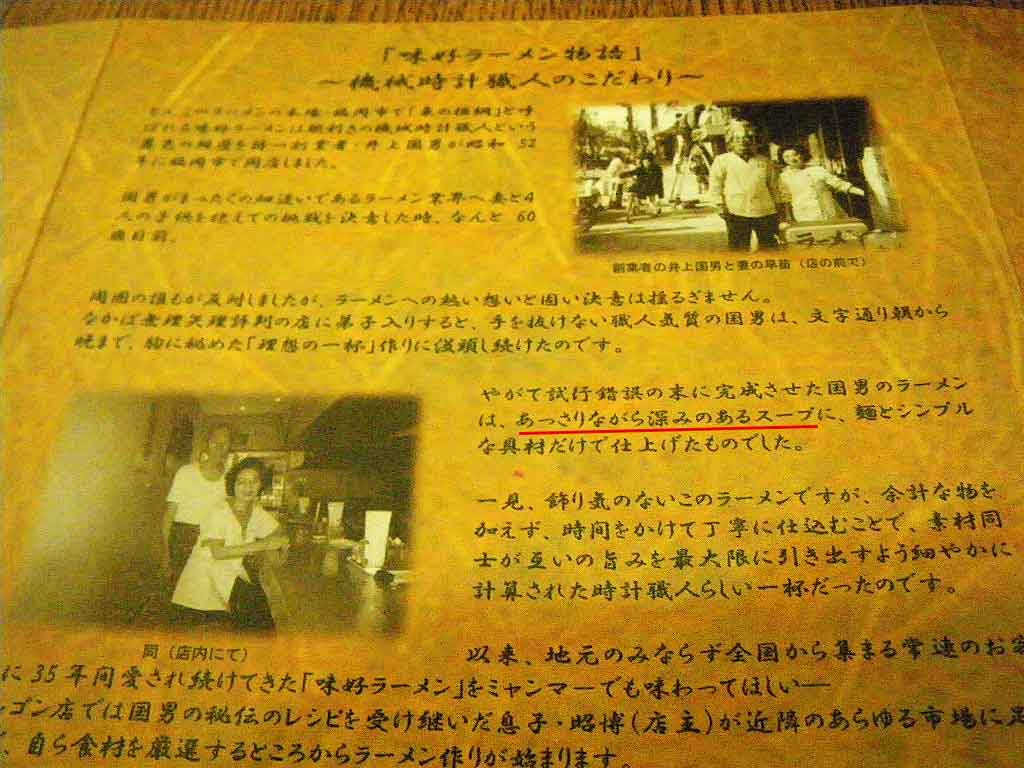 「味好ラーメン物語」
～機械時計職人のこだわり～
とんこつラーメンの本場・福岡市で「裏の横綱」と呼
ばれる味好ラーメンは腕利きの機械時計職人という
異色の経歴を持つ創業者・井上国男が昭和 52
年に福岡市で開店しました。
国男がまったくの畑違いであるラーメン業界へ妻と4
人の子供を抱えての挑戦を決意した時、なんと 60
歳目前。
創業者の井上国男と妻の早苗（店の前で）
周囲の誰もが反対しましたが、ラーメンへの熱い想いと固い決意は揺るぎません。
なかば無理矢理評判の店に弟子入りすると、手を抜けない職人気質の国男は、文字通り朝から
晩まで、胸に秘めた「理想の一杯」作りに没頭し続けたのです。
やがて試行錯誤の末に完成させた国男のラーメン
は、あっさりながら深みのあるスープに、麺とシンプル
な具材だけで仕上げたものでした。
一見、飾り気のないこのラーメンですが、余計な物を
加えず、時間をかけて丁寧に仕込むことで、素材同
士が互いの旨みを最大限に引き出すよう細やかに
計算された時計職人らしい一杯だったのです。
同（店内にて）
以来、地元のみならず全国から集まる常連のお客
に 35 年間愛され続けてきた「味好ラーメン」をミャンマーでも味わってほしい―
ンゴン店では国男の秘伝のレシピを受け継いだ息子・昭博（店主）が近隣のあらゆる市場に足
、自ら食材を厳選するところからラーメン作りが始まります。